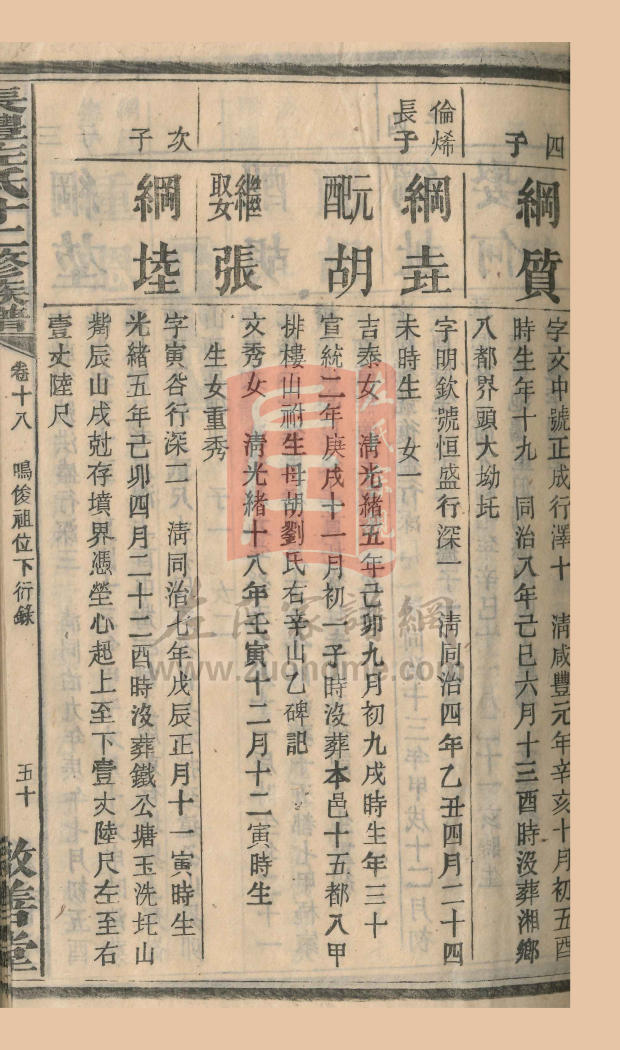 四子
綱質
字文中號正成行澤十 淸咸豐元年辛亥十月初五酉
時生年十九 同治八年己巳六月十三酉時沒葬湘鄉
八都界頭大坳圫
倫烯長子
綱垚
字明欽號恒盛行深一 淸同治四年乙丑四月二十四
未時生 女一
元配胡
吉泰女 淸光緒五年己卯九月初九戌時生年三十
宣統二年庚戌十一月初一子時沒葬本邑十五都八甲
排樓山祔生母胡劉氏右辛山乙碑記
繼娶張
文秀女 淸光緒十八年壬寅十二月十二寅時生
生女重秀
次子
綱埄
字寅谷行深二 淸同治七年戊辰正月十一寅時生
光緒五年己卯四月二十二酉時沒葬鐵公塘玉洗圫山
觜辰山戌尅存墳界憑塋心起上至下壹丈陸尺左至右
壹丈陸尺
長澧左氏十二修族譜
卷十八 鳴俊祖位下衍錄
五十
敦善堂
左氏家譜網
www.zuohome.com